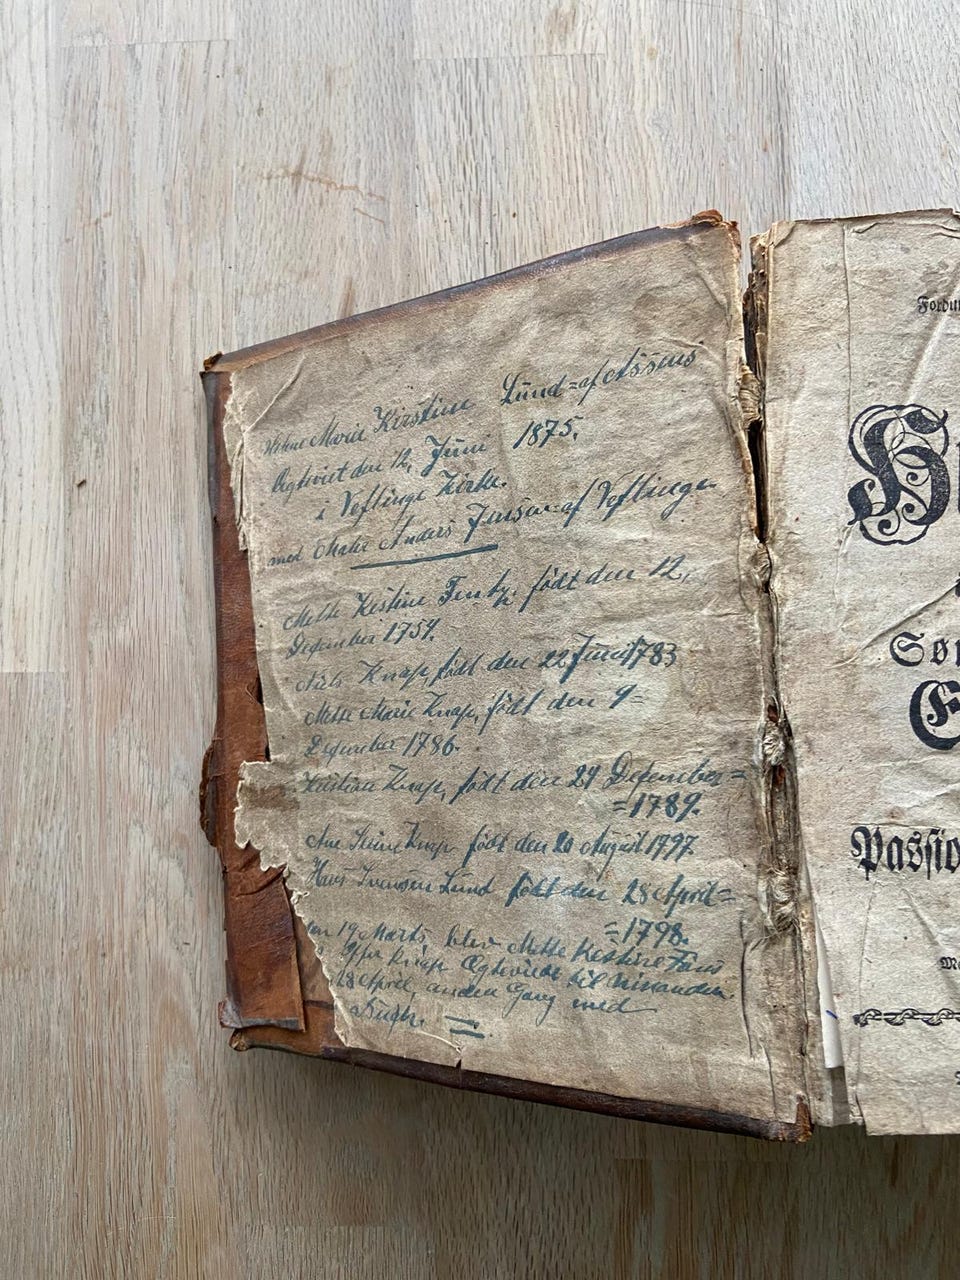 Marie Kirstine Lund=af Assens
Ægteviet den 12, Juni 1875.
i Veflinge Kirke.
med Maler Anders Jensen=af Veflinge.
Mette Kestine født den 12,
December 1754.
Niels Knap, født den 22 Juni 1783
Mette Marie Knap, født den 9=
December 1786.
Kristian Knap, født den 24 Desember=
=1789.
Ane Knap født den 20 August 1797.
Hans Svensen Lund født den 28 April=
=1798.
19 Marts, blev Mette Kestine
Knap Ægteviede til hinanden.
18 April, anden Gang med
Fordum
Passio